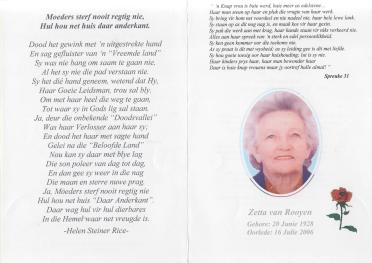 Moeders sterf nooit regtig nie,
Hul hou net huis daar anderkant.
Dood het gewink met 'n uitgestrekte hand
En sag gefluister van 'n "Vreemde land"
Sy was nie bang om saam te gaan nie.
Al het sy nie die pad verstaan nie.
Sy het dié hand geneem, wetend dat Hy,
Haar Goeie Leidsman, trou sal bly.
Om met haar heel die weg te gaan,
Tot waar sy in Gods lig sal staan.
Ja, deur die onbekende "Doodsvallei"
Was haar Verlosser aan haar sy;
En dood het haar met sagte hand
Gelei na die "Beloofde Land"
Nou kan sy daar met blye lag
Die son poleer van dag tot dag,
En dan gee sy weer in die nag
Die maan en sterre nuwe prag.
Ja, Moeders sterf nooit regtig nie
Hul hou net huis "Daar Anderkant".
Daar wag hul vir hul dierbares
In die Hemel waar net vreugde is.
-Helen Steiner Rice-
" 'n Knap vrou is baie werd, baie meer as edelstene...
Haar man steun op haar en pluk die vrugte van haar werk.
Sy bring vir hom net voordeel en nie nadeel nie, haar hele lewe lank.
Sy staan op as dit nog nag is, en maak kos vir haar gesin.
Sy pak die werk aan met krag, haar hande staan vir niks verkeerd nie.
Alles aan haar spreek van 'n sterk en edel persoonlikheid.
Sy ken geen kommer oor die toekoms nie.
As sy praat is dit met wysheid en sy leiding gee is dit met liefde.
Sy hou goeie toesig oor haar huishouding, lui is sy nie.
Haar kinders prys haar, haar man bewonder haar
Daar is baie knap vrouens maar jy oortref hulle almal! "
Spreuke 31
Zetta van Rooyen
Gebore: 20 Junie 1928
Oorlede: 16 Julie 2006